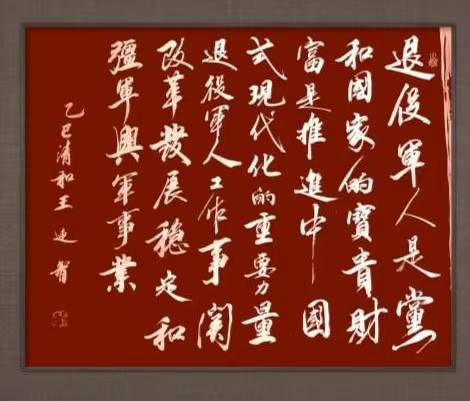 退役軍人是黨
和國家的寶貴財
富是推進中國
式現代化的重要力量
退役軍人工作事關
改革發展穩定和
彊軍興軍事業
乙巳清和王連智